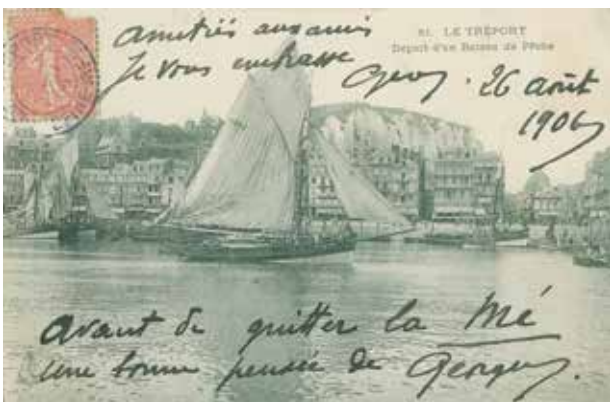 81. LE TRÉPORT
Départ d'un Bateau de Pêche
Amitiés aux amis
Je vous embrasse
Geo. 26 août
1906
avant de quitter la Mé
une bonne pensée de Georges.